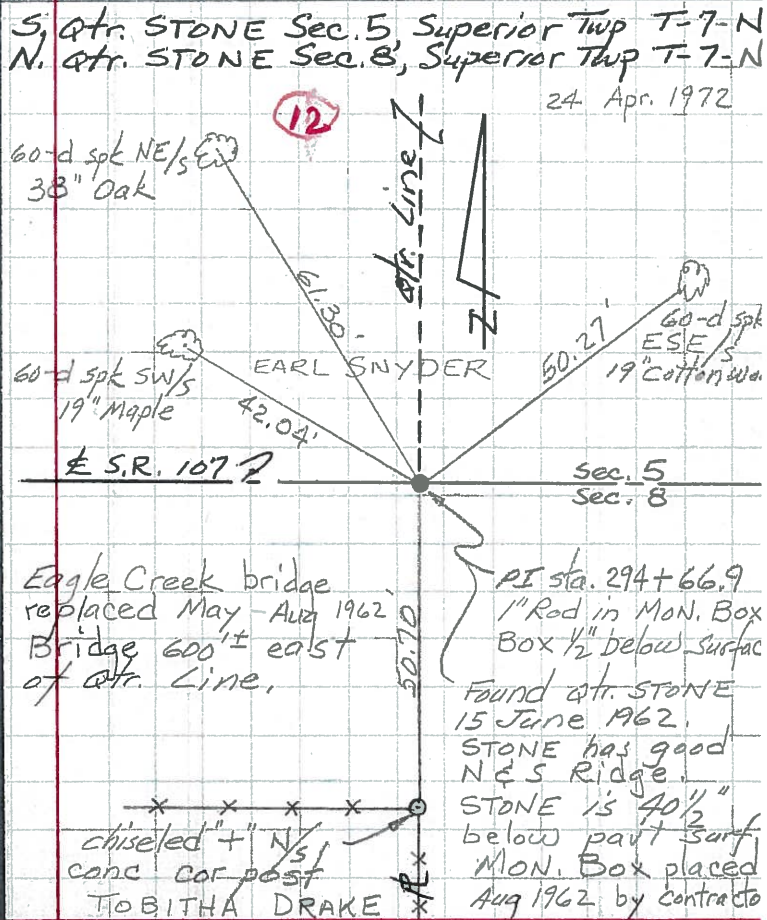 S. Qtr. STONE Sec. 5, Superior Twp T-7-N
N. Qtr. STONE Sec. 8, Superior Twp T-7-N
24 Apr. 1972
12
60-d spk NE/s
38" Oak
Qtr. Line
61.30'
N
60-d spk
ESE/s
19" Cottonwoo
50.27'
EARL SNYDER
60-d spk SW/s
19" Maple
42.04'
℄ S.R. 107
Sec. 5
Sec. 8
Eagle Creek bridge
replaced May - Aug 1962
Bridge 600'± east
of Qtr. Line.
50.70'
PI sta. 294+66.9
1" Rod in MON. Box
Box ½" below Surfac
Found Qtr. STONE
15 June 1962.
STONE has good
N & S Ridge.
STONE is 40½"
below pav't surf.
MON. Box placed
Aug 1962 by contracto
chiseled "+" N/s
conc cor post
TOBITHA DRAKE